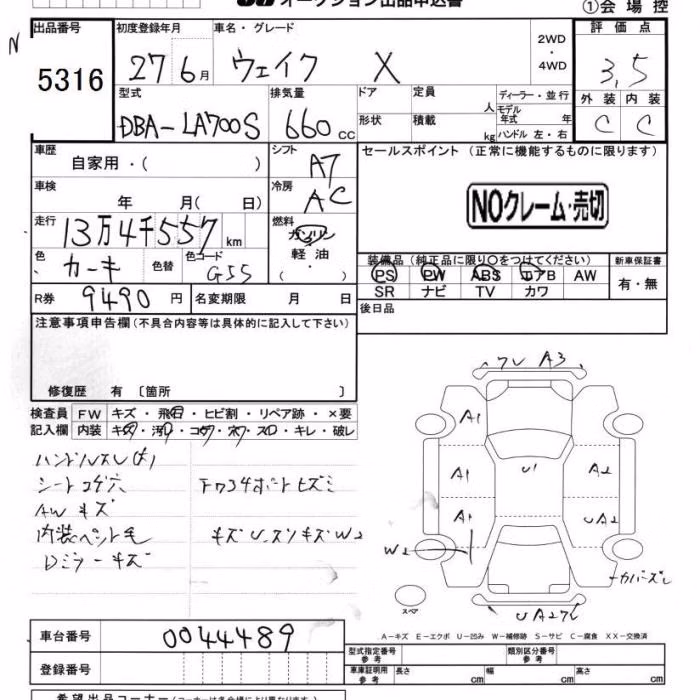 オークション出品申込書
①会場控
出品番号 5316
初度登録年月 27 6月
車名・グレード ウェイク X
2WD ・ 4WD
評価点 3.5
外装 C 内装 C
型式 DBA-LA700S
排気量 660 cc
ドア 形状
定員 人
積載 kg
ディーラー・並行
モデル年式 年
ハンドル 左・右
車歴 自家用・( )
シフト A7
セールスポイント (正常に機能するものに限ります)
車検 年 月( 日)
冷房 AC
NOクレーム・売切
走行 13万4千557 km
燃料 ガソリン 軽油 ( ・ )
色 カーキ 色替
色コード G55
装備品 (純正品に限り〇をつけてください)
PS PW ABS エアB AW
SR ナビ TV カワ
新車保証書 有・無
R券 9490円
名変期限 月 日
後日品
注意事項申告欄 (不具合内容等は具体的に記入して下さい)
修復歴 有 〔箇所 〕
検査員記入欄
FW キズ・飛石・ヒビ割・リペア跡・×要
内装 キズ・汚れ・コゲ・穴・スレ・キレ・破レ
ハンドルスレ(大)
シートコゲ穴
AWキズ
内装ペット毛
Dミラーキズ
ワレ A3
A1
A1
U1
A2
A1
UA2
W2
カバーズレ
スペア
A-キズ E-エクボ U-凹み W-補修跡 S-サビ C-腐食 XX-交換済
車台番号 0044489
登録番号
型式指定番号 参考
類別区分番号 参考
車庫証明用 参考 長さ cm 幅 cm 高さ cm
希望出品コーナー